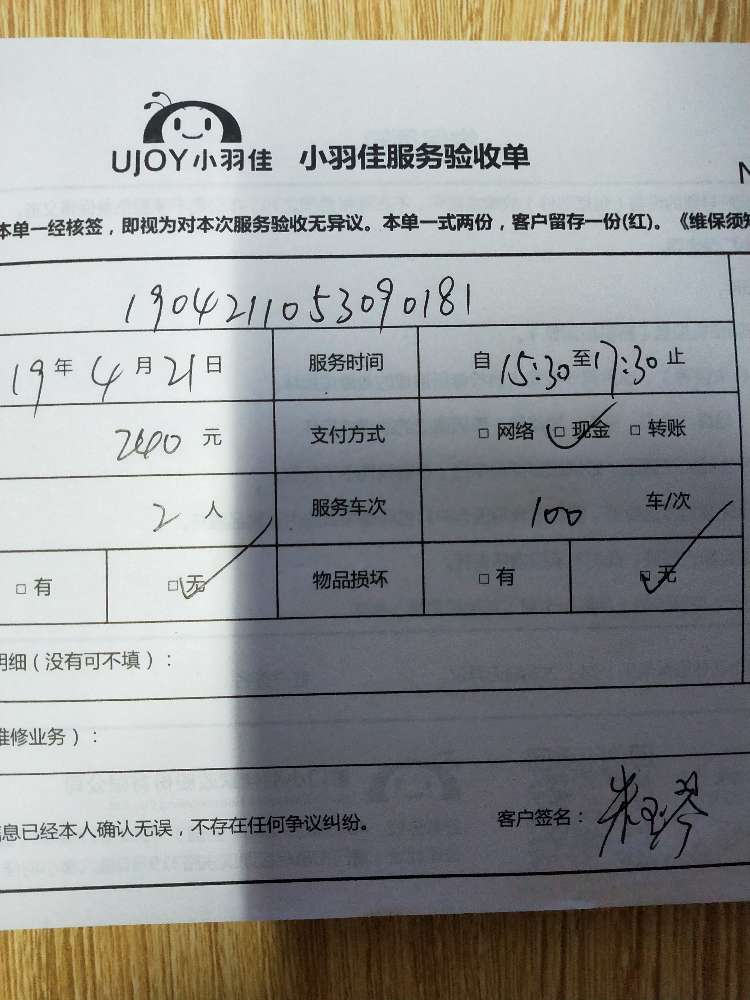 UJOY小羽佳 小羽佳服务验收单
本单一经核签，即视为对本次服务验收无异议。本单一式两份，客户留存一份(红)。《维保须知
1904211053090181
19年4月21日 服务时间 自15:30至17:30止
240元 支付方式 □网络 □现金 □转账
2人 服务车次 100 车/次
□有 □无 物品损坏 □有 □无
明细（没有可不填）：
维修业务）：
信息已经本人确认无误，不存在任何争议纠纷。 客户签名：